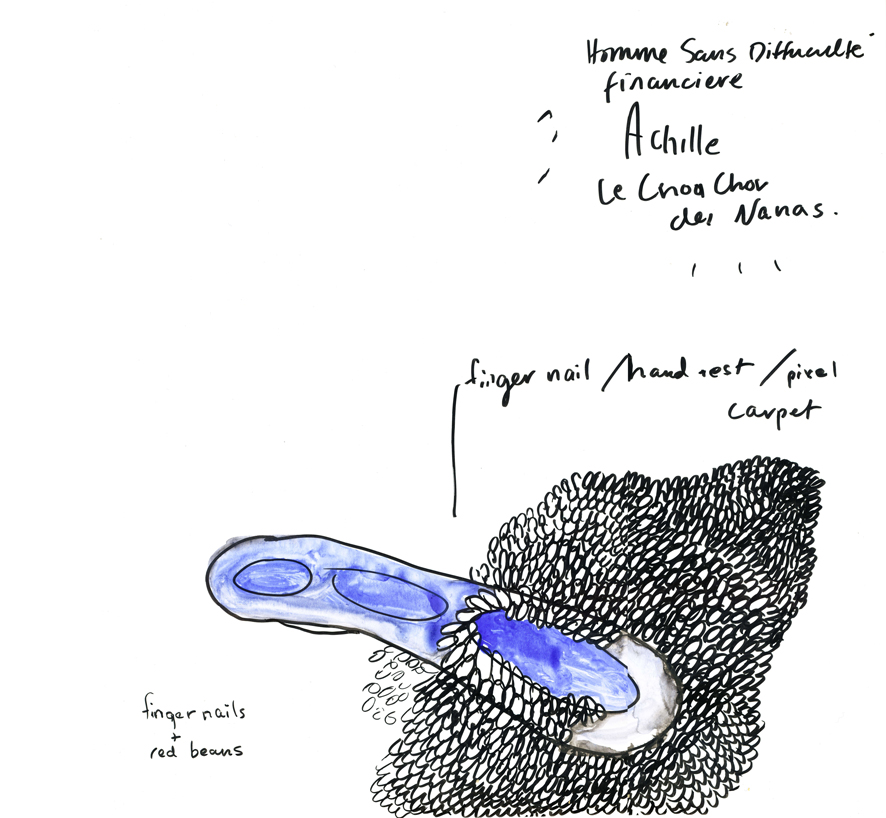 Homme Sans Difficulté
financiere
Achille
Le Chou Chou
des Nanas.
finger nail / hand rest / pixel
carpet
finger nails
+
red beans